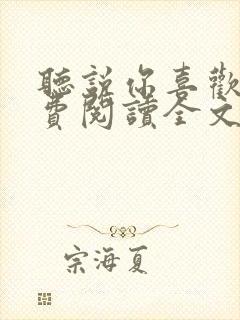 聽說你喜歡
費閱讀全文
宗海夏